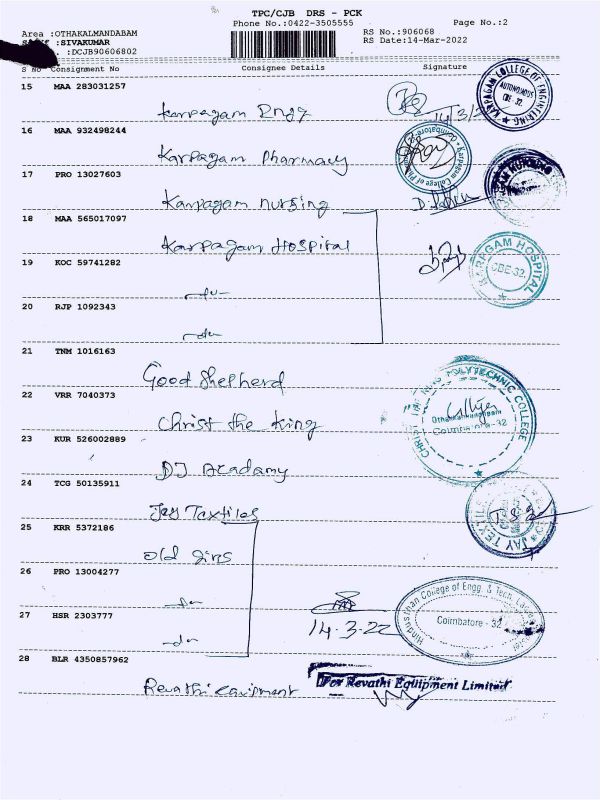 TPC/CJB DRS - PCK
Phone No.:0422-3505555
Page No.:2
Area :OTHAKALMANDABAM
:SIVAKUMAR
.:DCJB90606802
RS No.:906068
RS Date:14-Mar-2022
S No Consignment No Consignee Details Signature
15 MAA 283031257
Karpagam Engg
14/3/2
KARPAGAM COLLEGE OF ENGINEERING
AUTONOMOUS
CBE-32.
16 MAA 932498244
Karpagam Pharmacy
Karpagam College of Ph
Coimbatore
17 PRO 13027603
Karpagam nursing
18 MAA 565017097
Karpagam Hospital
KARPAGAM HOSPITAL
CBE-32.
19 KOC 59741282
-do-
20 RJP 1092343
-do-
21 TNM 1016163
Good Shepherd
22 VRR 7040373
Christ the King
CHRIST THE KING POLYTECHNIC COLLEGE
Othakalmandapam
Coimbatore-32
23 KUR 526002889
DJ Acadamy
24 TCG 50135911
Jay Textiles
JAY TEX
25 KRR 5372186
Old Gins
26 PRO 13004277
-do-
27 HSR 2303777
-do-
14.3.22
Hindusthan College of Engg. & Tech.
Coimbatore - 32
28 BLR 4350857962
Revathi Equipment
For Revathi Equipment Limited